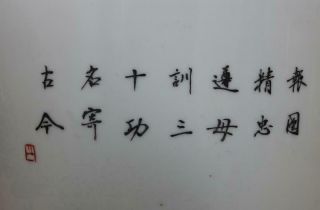 報国
精忠
遵母
訓三
十功
名寄
古今